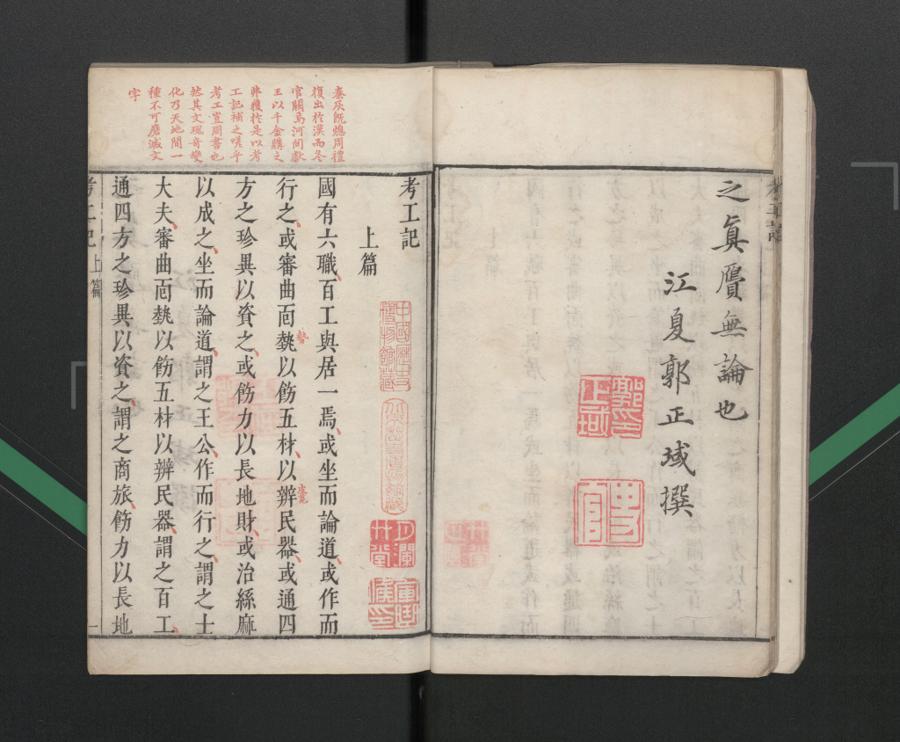 之眞贋無論也
江夏郭正域撰
考工記
上篇
國有六職百工與居一焉或坐而論道或作而
行之或審曲面埶以飭五材以辨民器或通四
方之珍異以資之或飭力以長地財或治絲麻
以成之坐而論道謂之王公作而行之謂之士
大夫審曲面埶以飭五材以辨民器謂之百工
通四方之珍異以資之謂之商旅飭力以長地
秦灰旣熄周禮
復出於漢而冬
官闕焉河間獻
王以千金購之
弗獲於是以考
工記補之嗟乎
考工豈周書也
然其文瑰奇變
化乃天地間一
種不可磨滅文
字
考工記
上篇
一